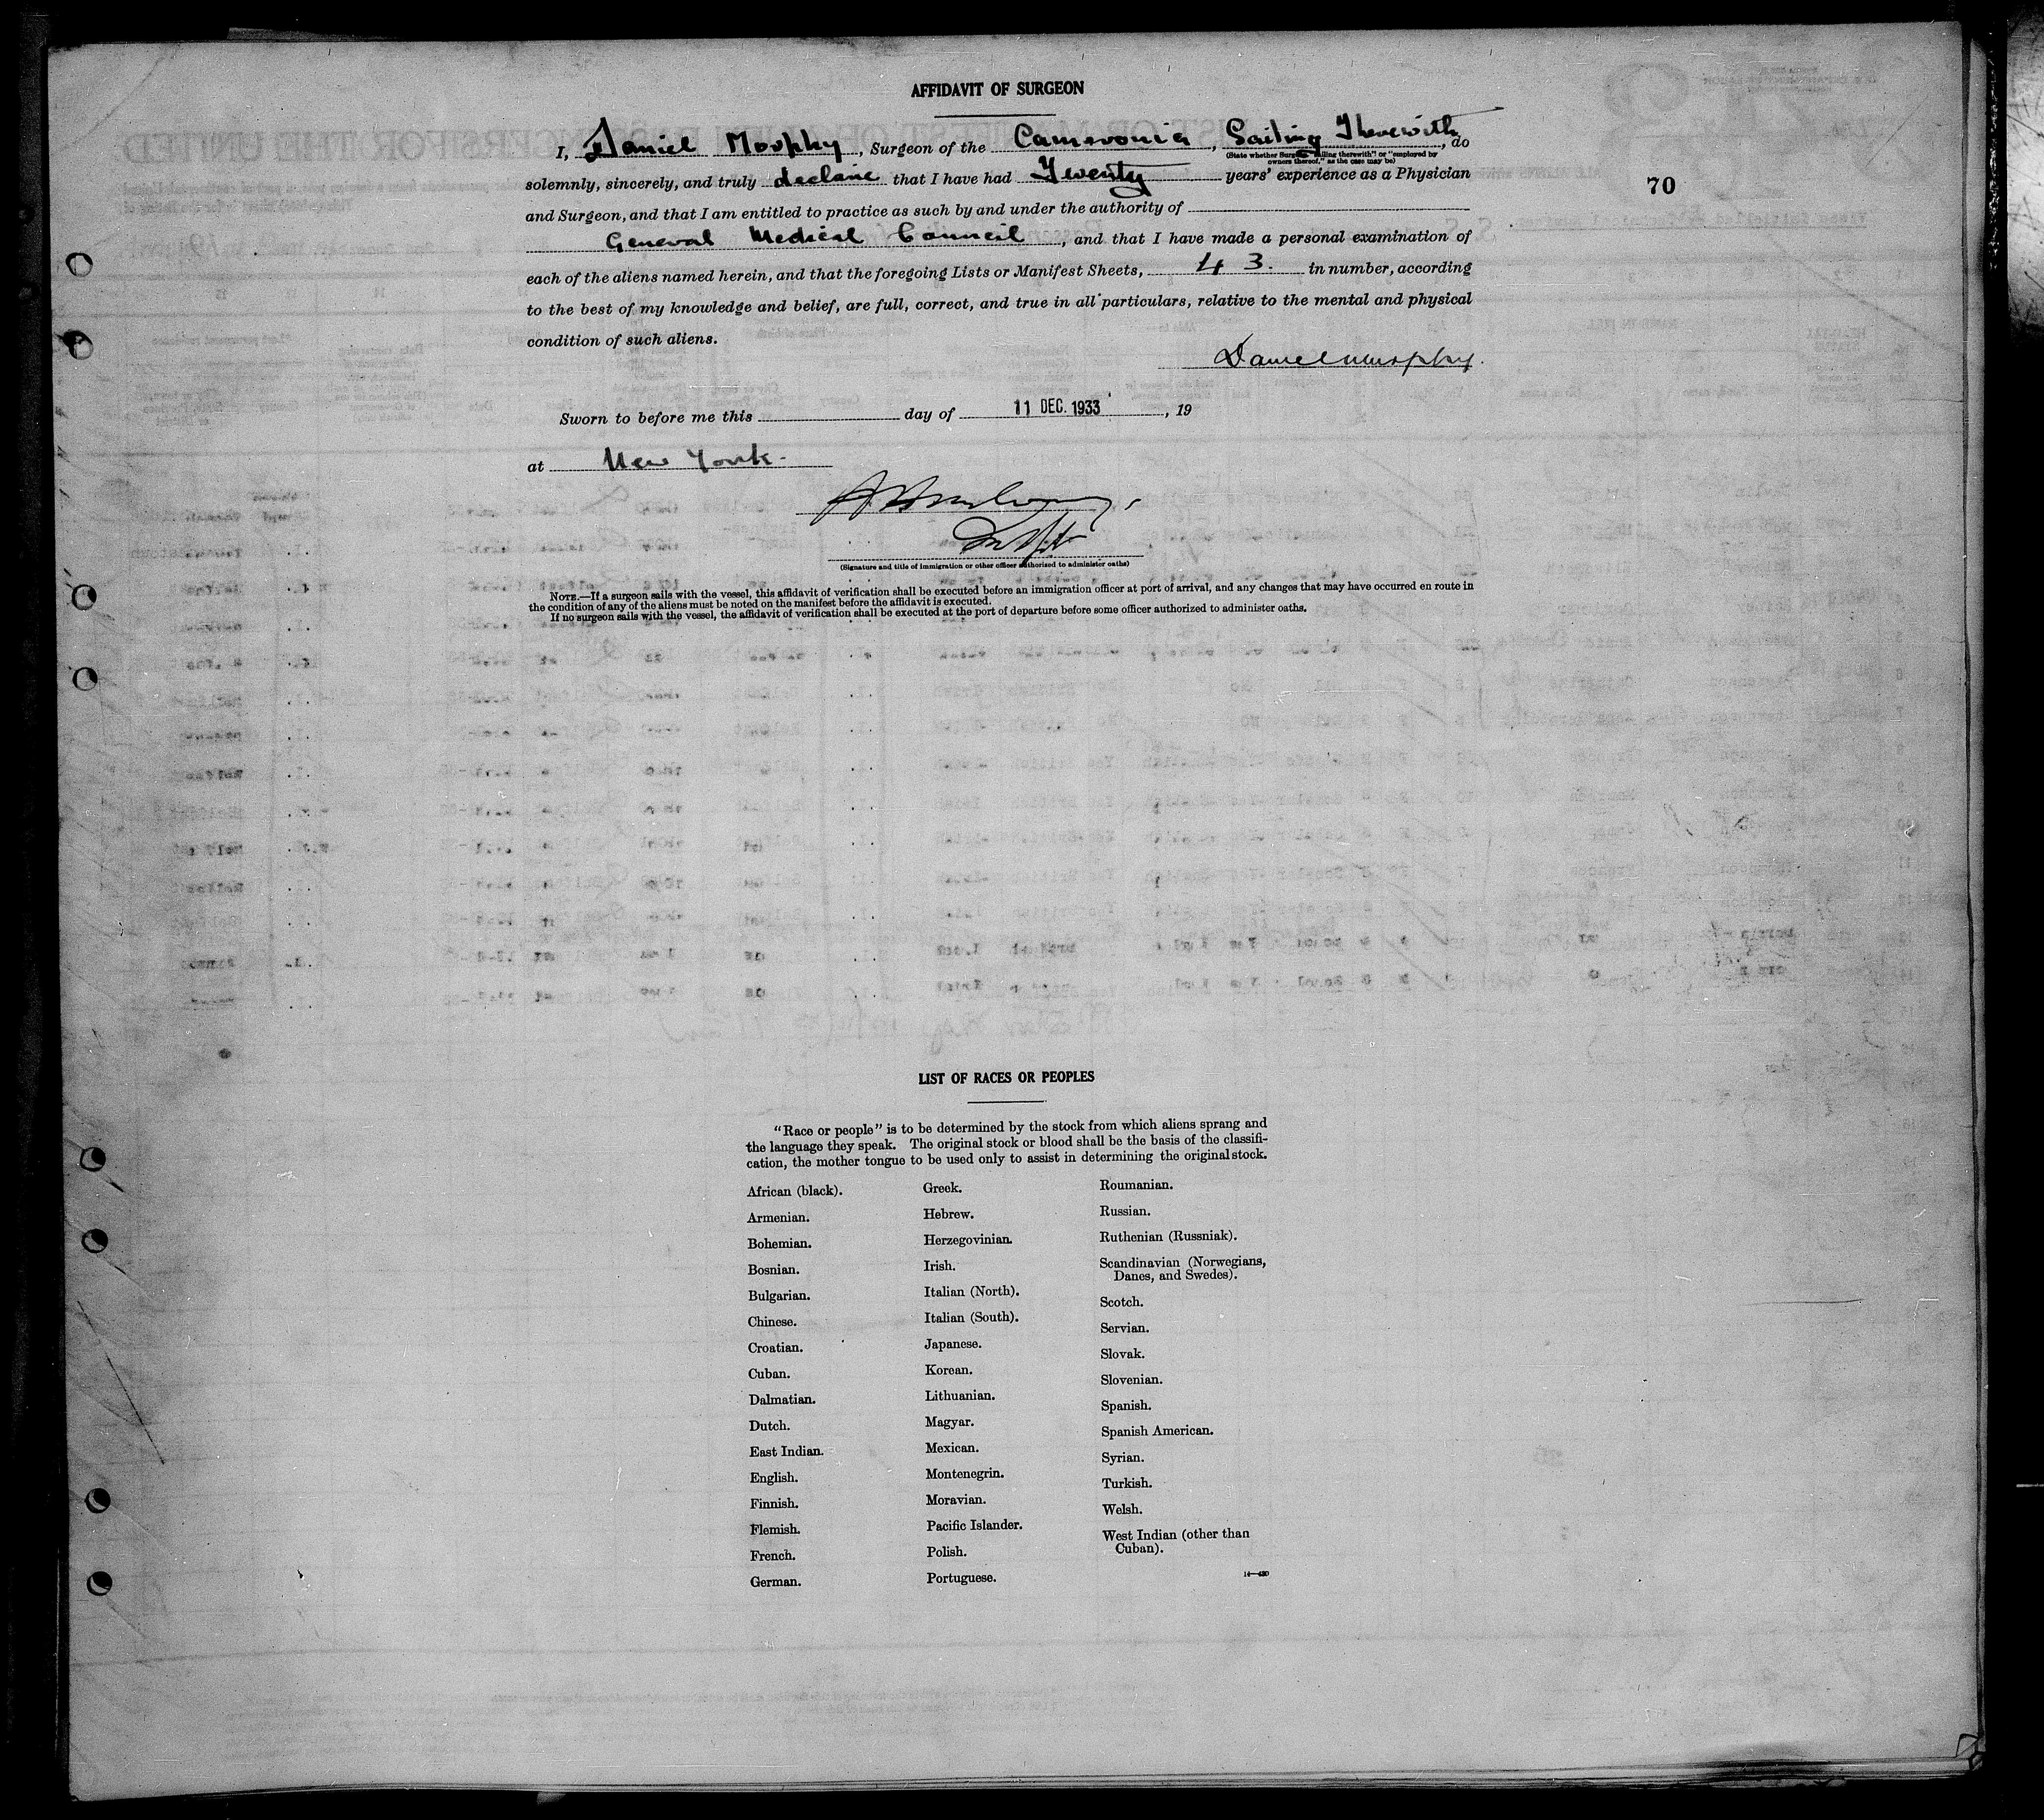 AFFIDAVIT OF SURGEON
I, Daniel Morphy, Surgeon of the Cameronia, Sailing Therewith, do
(State whether Surgeon "sailing therewith" or "employed by
owners thereof," as the case may be)
solemnly, sincerely, and truly declare that I have had Twenty years' experience as a Physician
70
and Surgeon, and that I am entitled to practice as such by and under the authority of
General Medical Council, and that I have made a personal examination of
each of the aliens named herein, and that the foregoing Lists or Manifest Sheets, 43. in number, according
to the best of my knowledge and belief, are full, correct, and true in all particulars, relative to the mental and physical
condition of such aliens.
Daniel Morphy.
Sworn to before me this day of 11 DEC. 1933, 19
at New York.
(Signature and title of immigration or other officer authorized to administer oaths)
NOTE.—If a surgeon sails with the vessel, this affidavit of verification shall be executed before an immigration officer at port of arrival, and any changes that may have occurred en route in
the condition of any of the aliens must be noted on the manifest before the affidavit is executed.
If no surgeon sails with the vessel, the affidavit of verification shall be executed at the port of departure before some officer authorized to administer oaths.
LIST OF RACES OR PEOPLES
"Race or people" is to be determined by the stock from which aliens sprang and
the language they speak. The original stock or blood shall be the basis of the classifi-
cation, the mother tongue to be used only to assist in determining the original stock.
African (black).
Armenian.
Bohemian.
Bosnian.
Bulgarian.
Chinese.
Croatian.
Cuban.
Dalmatian.
Dutch.
East Indian.
English.
Finnish.
Flemish.
French.
German.
Greek.
Hebrew.
Herzegovinian.
Irish.
Italian (North).
Italian (South).
Japanese.
Korean.
Lithuanian.
Magyar.
Mexican.
Montenegrin.
Moravian.
Pacific Islander.
Polish.
Portuguese.
Roumanian.
Russian.
Ruthenian (Russniak).
Scandinavian (Norwegians,
Danes, and Swedes).
Scotch.
Servian.
Slovak.
Slovenian.
Spanish.
Spanish American.
Syrian.
Turkish.
Welsh.
West Indian (other than
Cuban).